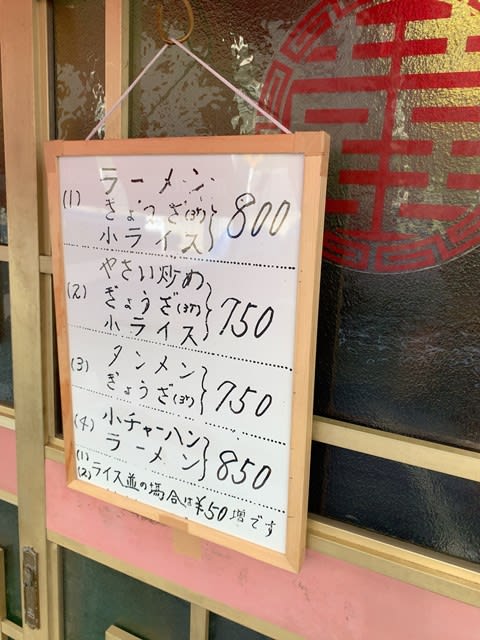 (1) ラーメン
ぎょうざ(3ケ)
小ライス
800
(2) やさい炒め
ぎょうざ(3ケ)
小ライス
750
(3) タンメン
ぎょうざ(3ケ)
750
(4) 小チャーハン
ラーメン
850
(1)
(2) ライス並の場合は¥50増です